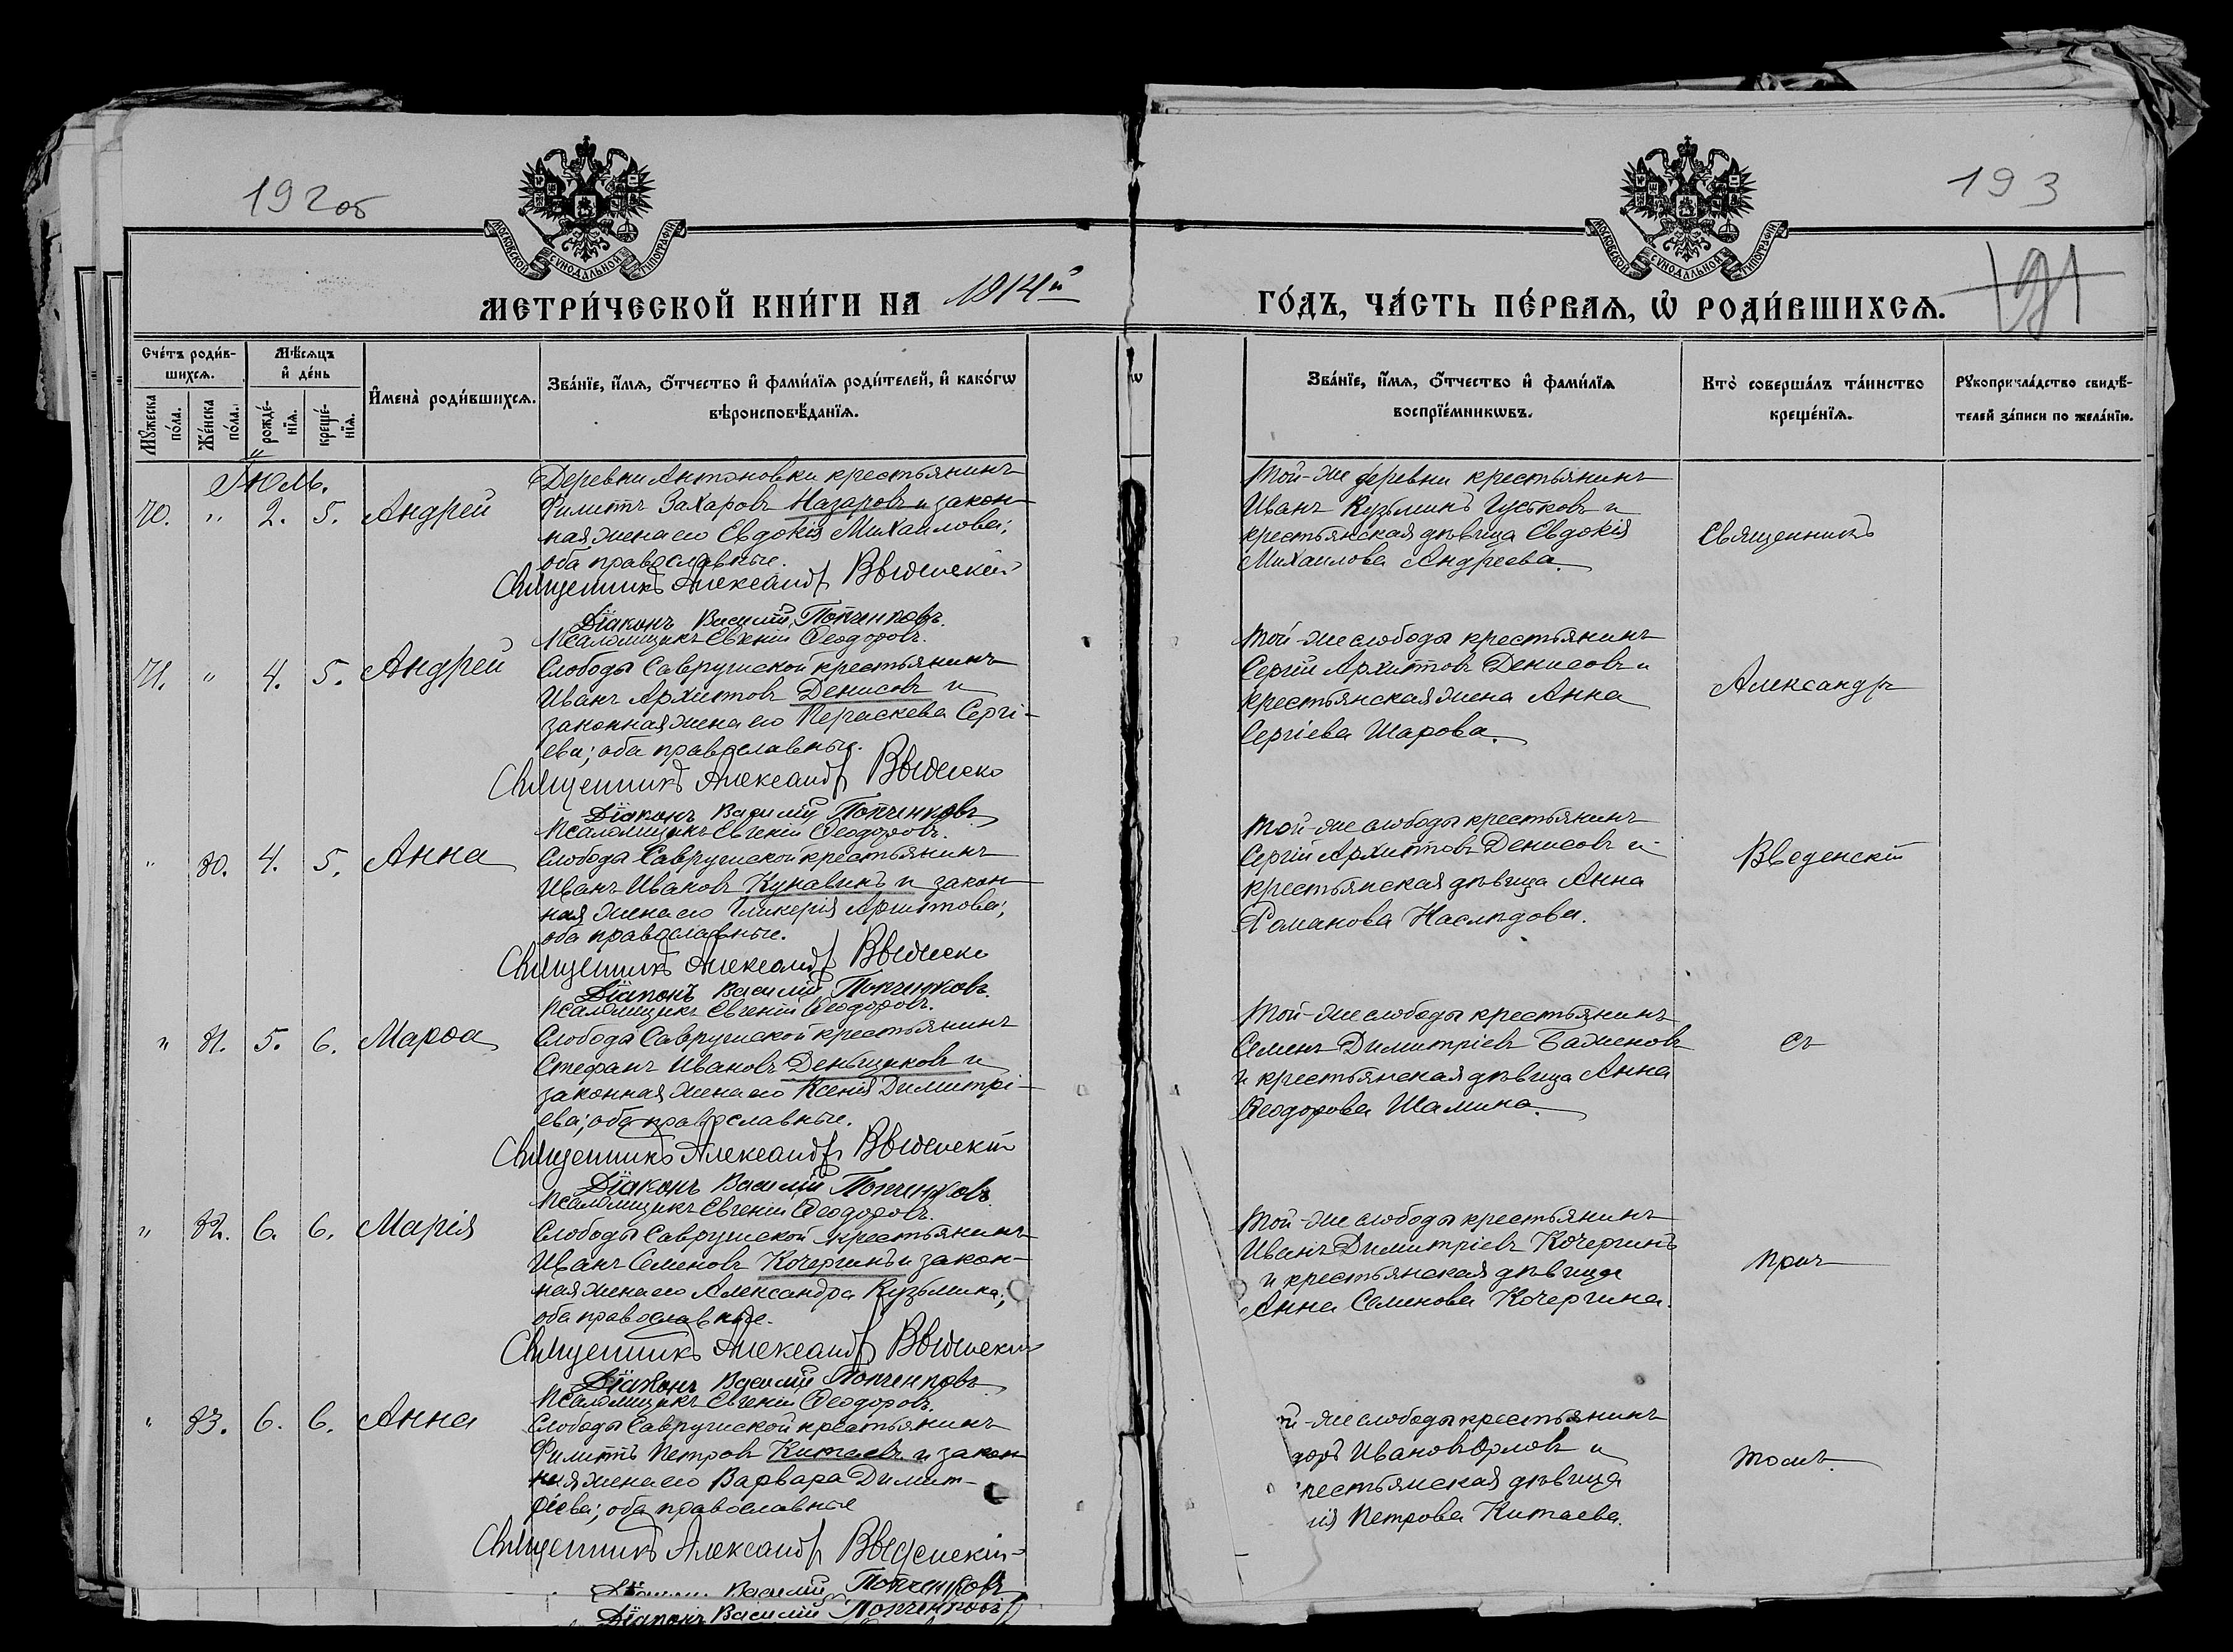 192об
193
191
МОСКОВСКОЙ СѴНОДАЛЬНОЙ ТИПОГРАФІИ
МОСКОВСКОЙ СѴНОДАЛЬНОЙ ТИПОГРАФІИ
МЕТРИ́ЧЕСКОЙ КНИ́ГИ НА 1914й
ГО́ДЪ, ЧА́СТЬ ПЕ́РВАѦ, Ѡ҆ РОДИ́ВШИХСѦ.
Сче́тъ роди́в-
шихсѧ.
Мѣ́сѧцъ
и҆ де́нь
И҆мена̀ роди́вшихсѧ.
Зва́нїе, и҆́мѧ, ѻ҆́тчество и҆ фами́лїѧ роди́телей, и҆ како́гѡ
вѣроисповѣ́данїѧ.
Мꙋ́жеска по́ла.
Же́нска по́ла.
рожде́-
нїѧ.
креще́-
нїѧ.
Зва́нїе, и҆́мѧ, ѻ҆́тчество и҆ фами́лїѧ
воспрїе́мникѡвъ.
Кто̀ соверша́лъ та́инство
креще́нїѧ.
Рꙋкоприкла́дство свидѣ́-
телей за́писи по жела́нїю.
Іюль.
70. " 2. 5. Андрей
Деревни Антоновки крестьянинъ
Филиппъ Захаровъ Назаровъ и закон-
ная жена его Евдокія Михаилова;
оба православные.
Священникъ Александръ Введенскій
Діаконъ Василій Попченковъ.
Псаломщикъ Евгеній Ѳеодоровъ.
Той-же деревни крестьянинъ
Иванъ Кузьминъ Гуськовъ и
крестьянская дѣвица Евдокія
Михаилова Андреева.
Священникъ
71. " 4. 5. Андрей
Слободы Саврушской крестьянинъ
Иванъ Архиповъ Денисовъ и
законная жена его Параскева Сергі-
ева; оба православные.
Священникъ Александръ Введенскі
Діаконъ Василій Попченковъ
Псаломщикъ Евгеній Ѳеодоровъ.
Той-же слободы крестьянинъ
Сергій Архиповъ Денисовъ и
крестьянская жена Анна
Сергіева Шарова.
Александръ
" 80. 4. 5. Анна
Слободы Саврушской крестьянинъ
Иванъ Ивановъ Кунавинъ и закон-
ная жена его Гликерія Архипова;
оба православные.
Священникъ Александръ Введенскі
Діаконъ Василій Попченковъ.
Псаломщикъ Евгеній Ѳеодоровъ.
Той-же слободы крестьянинъ
Сергій Архиповъ Денисовъ и
крестьянская дѣвица Анна
Романова Наслѣдова.
Введенскій
" 81. 5. 6. Марѳа
Слободы Саврушской крестьянинъ
Стефанъ Ивановъ Деньщиковъ и
законная жена его Ксенія Димитрі-
ева; оба православные.
Священникъ Александръ Введенскій
Діаконъ Василій Попченковъ
Псаломщикъ Евгеній Ѳеодоровъ.
Той-же слободы крестьянинъ
Семенъ Димитріевъ Баженовъ
и крестьянская дѣвица Анна
Ѳеодорова Шамина.
съ
" 82. 6. 6. Марія
Слободы Саврушской крестьянинъ
Иванъ Семеновъ Кочергинъ и закон-
ная жена его Александра Кузьмина;
оба православные.
Священникъ Александръ Введенскій
Діаконъ Василій Попченковъ
Псаломщикъ Евгеній Ѳеодоровъ.
Той-же слободы крестьянинъ
Иванъ Димитріевъ Кочергинъ
и крестьянская дѣвица
Анна Семенова Кочергина.
прич
" 83. 6. 6. Анна
Слободы Саврушской крестьянинъ
Филиппъ Петровъ Китаевъ и закон
ная жена его Варвара Димит-
ріева; оба православные
Священникъ Александръ Введенскій
Василій Попченковъ
Діаконъ Василій Попченковъ
й-же слободы крестьянинъ
доръ Ивановъ Орловъ и
рестьянская дѣвица
ия Петрова Китаева.
томъ.